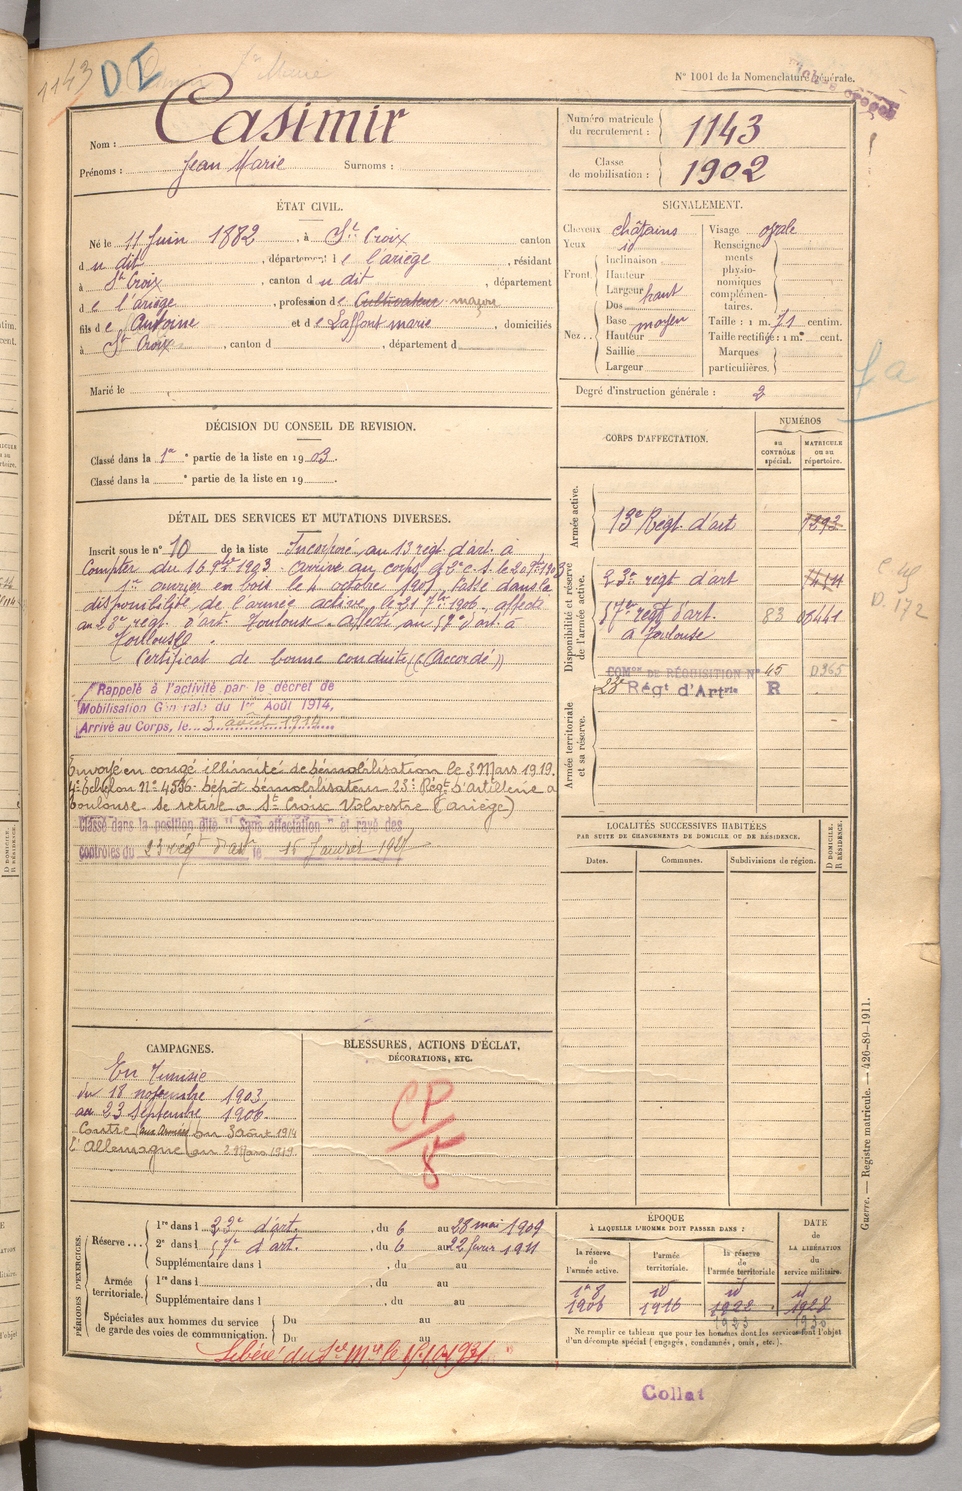 1143 D I
N° 1001 de la Nomenclature générale.
Nom : Casimir
Prénoms : Jean Marie Surnoms :
Numéro matricule du recrutement : 1143
Classe de mobilisation : 1902
ÉTAT CIVIL.
Né le 11 Juin 1882, à St Croix canton
du dit, département de l'ariège, résidant
à St Croix, canton du dit, département
de l'ariège, profession de Cultivateur maçon
fils de Antoine et de Laffont marie, domiciliés
à St Croix, canton d, département d
Marié le
SIGNALEMENT.
Cheveux châtains
Yeux id
Front. Inclinaison
Hauteur
Largeur haut
Nez.. Dos
Base moyen
Hauteur
Saillie
Largeur
Visage ovale
Renseignements physionomiques complémentaires.
Taille : 1 m. 71 centim.
Taille rectifiée : 1 m. cent.
Marques particulières.
Degré d'instruction générale : 2
DÉCISION DU CONSEIL DE REVISION.
Classé dans la 1re partie de la liste en 1903.
Classé dans la partie de la liste en 19
CORPS D'AFFECTATION.
NUMÉROS
au CONTRÔLE spécial.
MATRICULE ou au répertoire.
Armée active.
13e Régt. d'art 1293
Disponibilité et réserve de l'armée active.
23e regt d'art
57e regt d'art. 83 05441
à Toulouse
COMon DE RÉQUISITION N° 45 D365
23e Régt d'Artrie R
Armée territoriale et sa réserve.
C
D. 172
DÉTAIL DES SERVICES ET MUTATIONS DIVERSES.
Inscrit sous le n° 10 de la liste Incorporé au 13 régt d'art. à
Compter du 16 9bre 1903 arrivé au corps
1er ouvrier en bois le 4 octobre 1905 Passé dans la
disponibilité de l'armée active le 21 7bre 1906, affecté
au 23e regt d'art. Toulouse. Affecté au 57e d'art. à
Toulouse.
Certificat de bonne conduite ((Accordé))
Rappelé à l'activité par le décret de
Mobilisation Générale du 1er Août 1914,
Arrivé au Corps, le 3 août 1914
Envoyé en congé illimité de démobilisation le 3 Mars 1919.
4e Echelon N° 4536 dépôt démobilisateur 23e Régt d'Artillerie à
Toulouse se retire à St Croix Volvestre (Ariège)
Classé dans la position dite "Sans affectation" et rayé des
contrôles du 23 régt d'art le 15 Janvier 1927
LOCALITÉS SUCCESSIVES HABITÉES
PAR SUITE DE CHANGEMENTS DE DOMICILE OU DE RÉSIDENCE.
Dates. Communes. Subdivisions de région.
D DOMICILE.
R RÉSIDENCE.
CAMPAGNES.
En Tunisie
du 18 novembre 1903
au 23 Septembre 1906.
Contre (aux Armées) du 3 août 1914
l'Allemagne au 2 Mars 1919
BLESSURES, ACTIONS D'ÉCLAT,
DÉCORATIONS, ETC.
CP
8
PÉRIODES D'EXERCICES.
Réserve ... 1re dans l 23e d'art., du 6 au 28 mai 1909
2e dans l 57e d'art., du 6 au 22 févr 1911
Supplémentaire dans l, du au
Armée territoriale. 1re dans l, du au
Supplémentaire dans l, du au
Spéciales aux hommes du service de garde des voies de communication. Du au
Du au
ÉPOQUE
À LAQUELLE L'HOMME DOIT PASSER DANS :
la réserve de l'armée active.
l'armée territoriale.
la réserve de l'armée territoriale
DATE de LA LIBÉRATION du service militaire.
1906 1916 1922 1928
1923 1930
Ne remplir ce tableau que pour les hommes dont les services font l'objet d'un décompte spécial (engagés, condamnés, omis, etc.).
Guerre. — Registre matricule. — 426-89-1911.
Collat